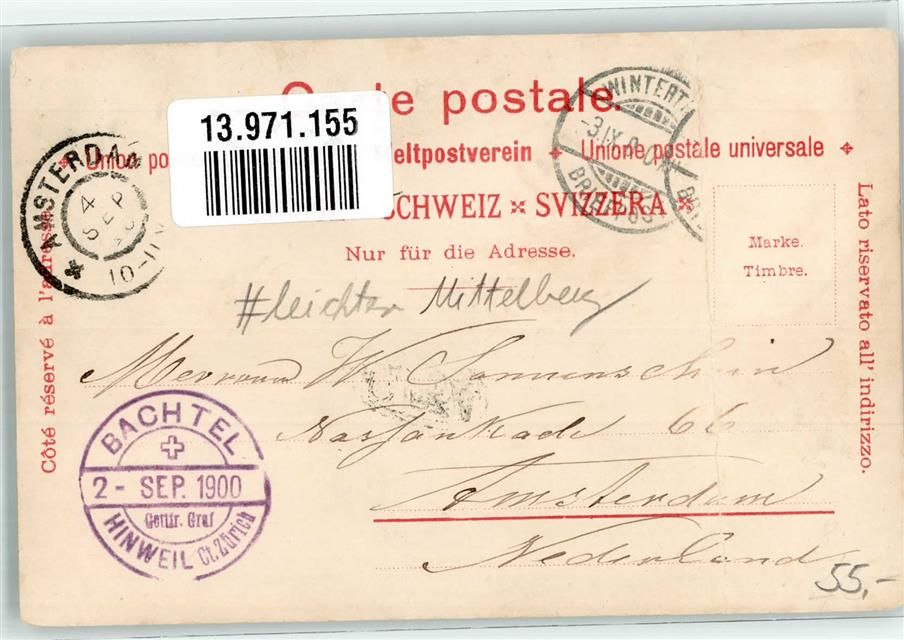 Carte postale.
13.971.155
Weltpostverein Unione postale universale
SCHWEIZ SVIZZERA
Nur für die Adresse.
Marke.
Timbre.
Côté réservé à l'adresse
Lato riservato all' indirizzo.
AMSTERDAM
4 SEP
10-11
WINTERT
-3.IX
#leichter Mittelberg
W. Sonnenschein
Nassaukade 66
Amsterdam
Nederland
BACHTEL
2 - SEP. 1900
Gottfr. Graf
HINWEIL Ct. Zürich
55,-